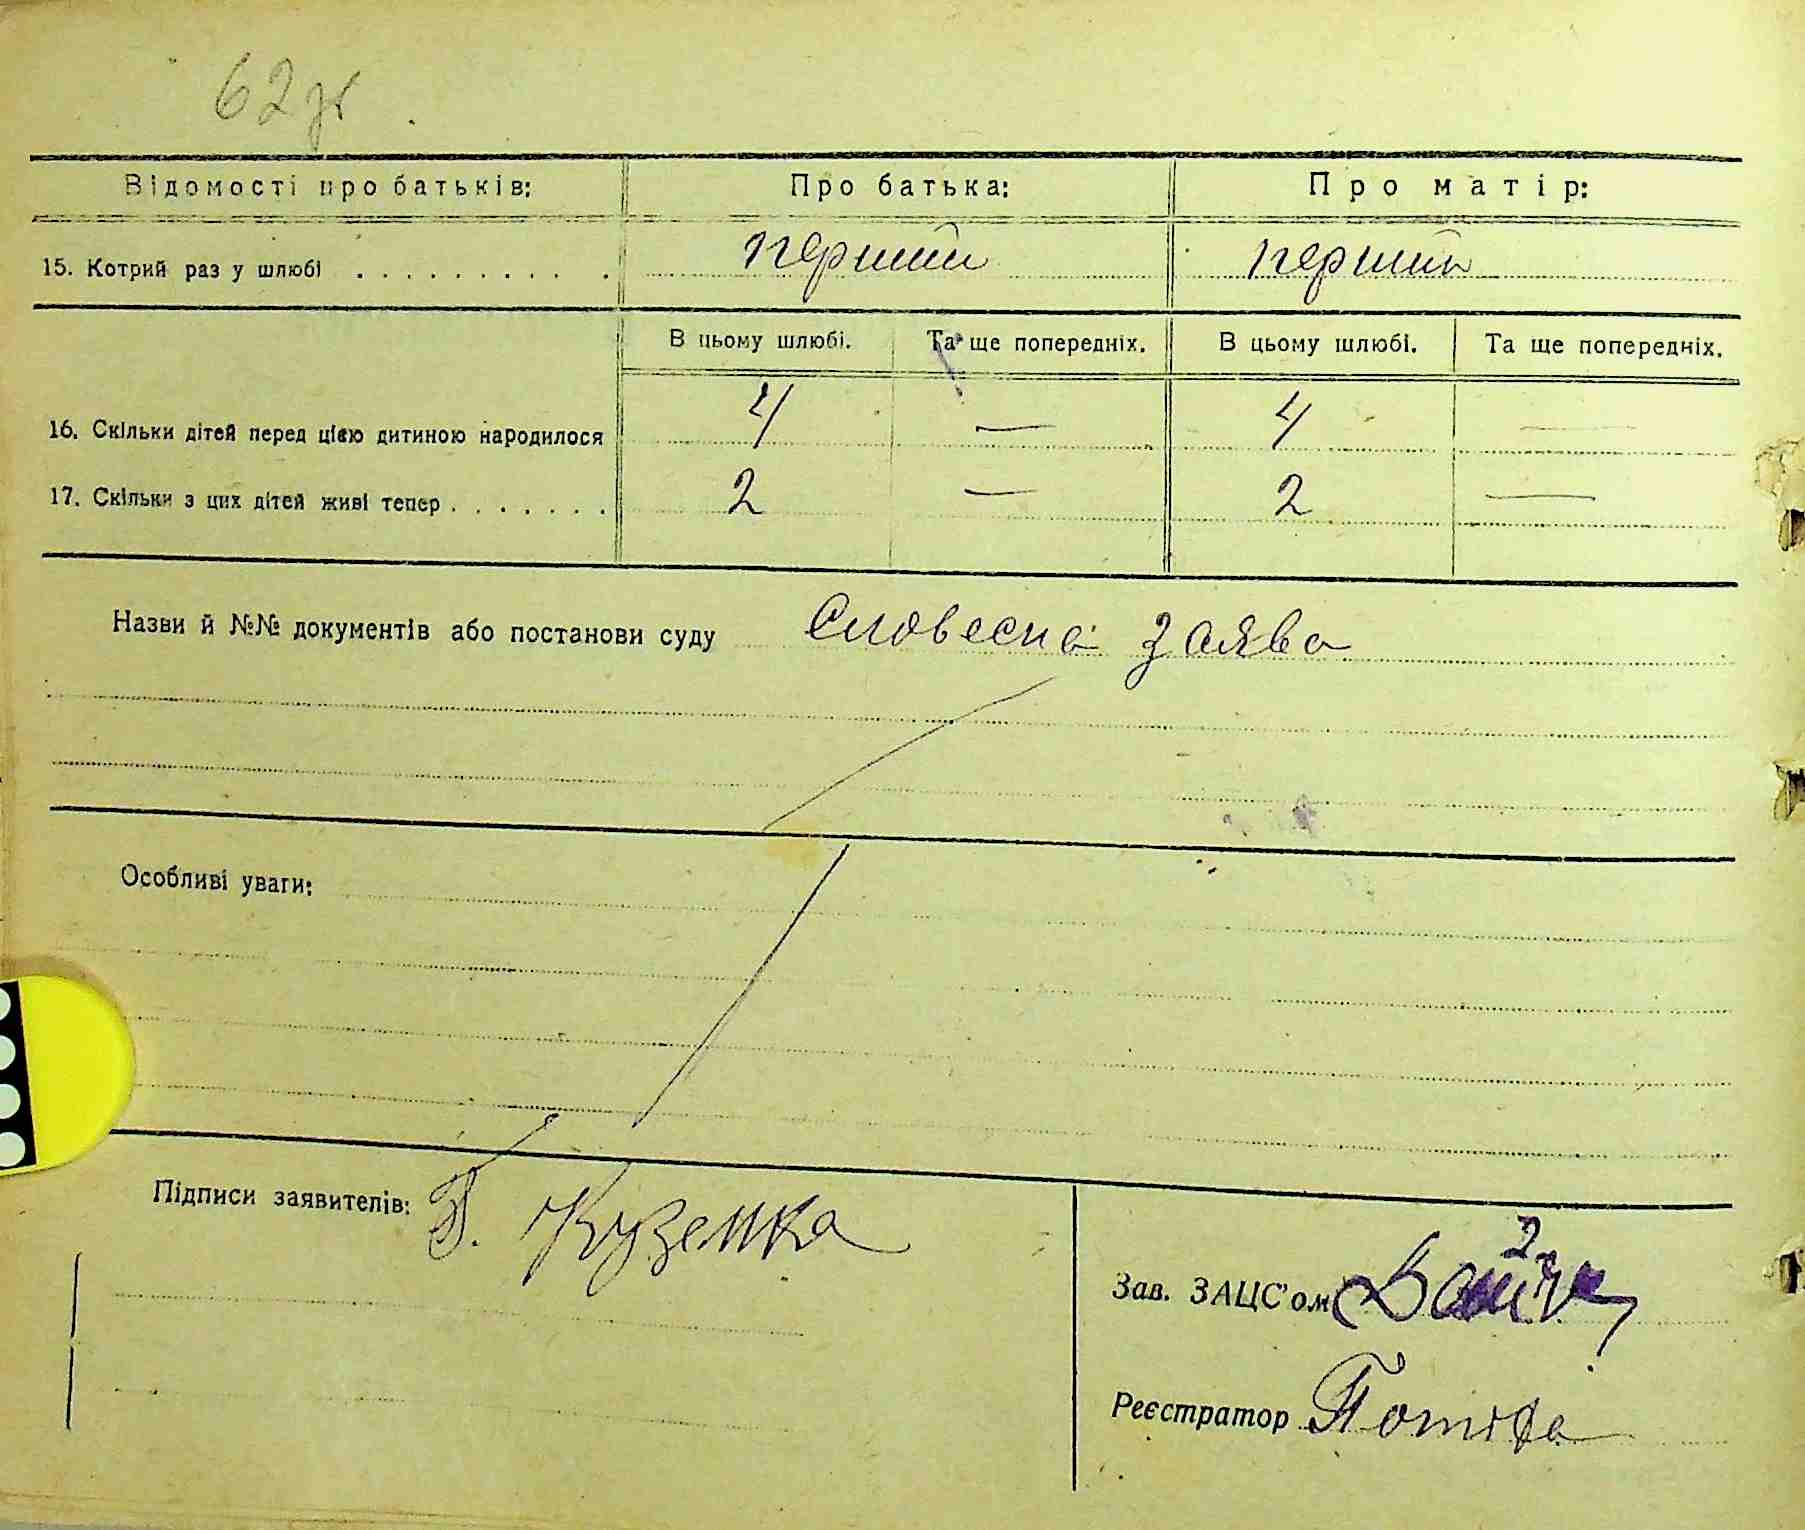 62зв
Відомості про батьків: Про батька: Про матір:
15. Котрий раз у шлюбі . . . . . . . . . . перший перший
В цьому шлюбі. Та ще попередніх. В цьому шлюбі. Та ще попередніх.
16. Скільки дітей перед цією дитиною народилося 4 — 4 —
17. Скільки з цих дітей живі тепер . . . . . . . 2 — 2 —
Назви й №№ документів або постанови суду Словесна заява
Особливі уваги:
Підписи заявителів: Куземка
Зав. ЗАЦС'ом
Реєстратор